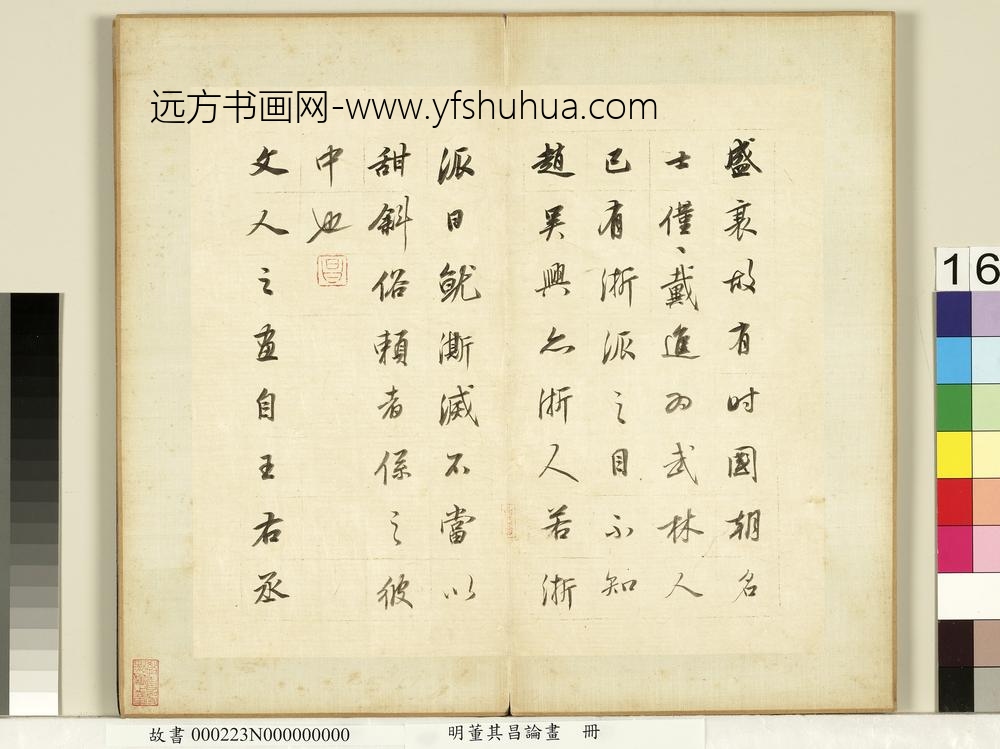 远方书画网-www.yfshuhua.com
盛衰故有时國朝名
士僅〻戴進为武林人
已有浙派之目不知
趙吴興亦浙人若浙
派日就澌滅不當以
甜斜俗頼者係之彼
中也
文人之畫自王右丞
故書 000223N000000000 明董其昌論畫 冊
16